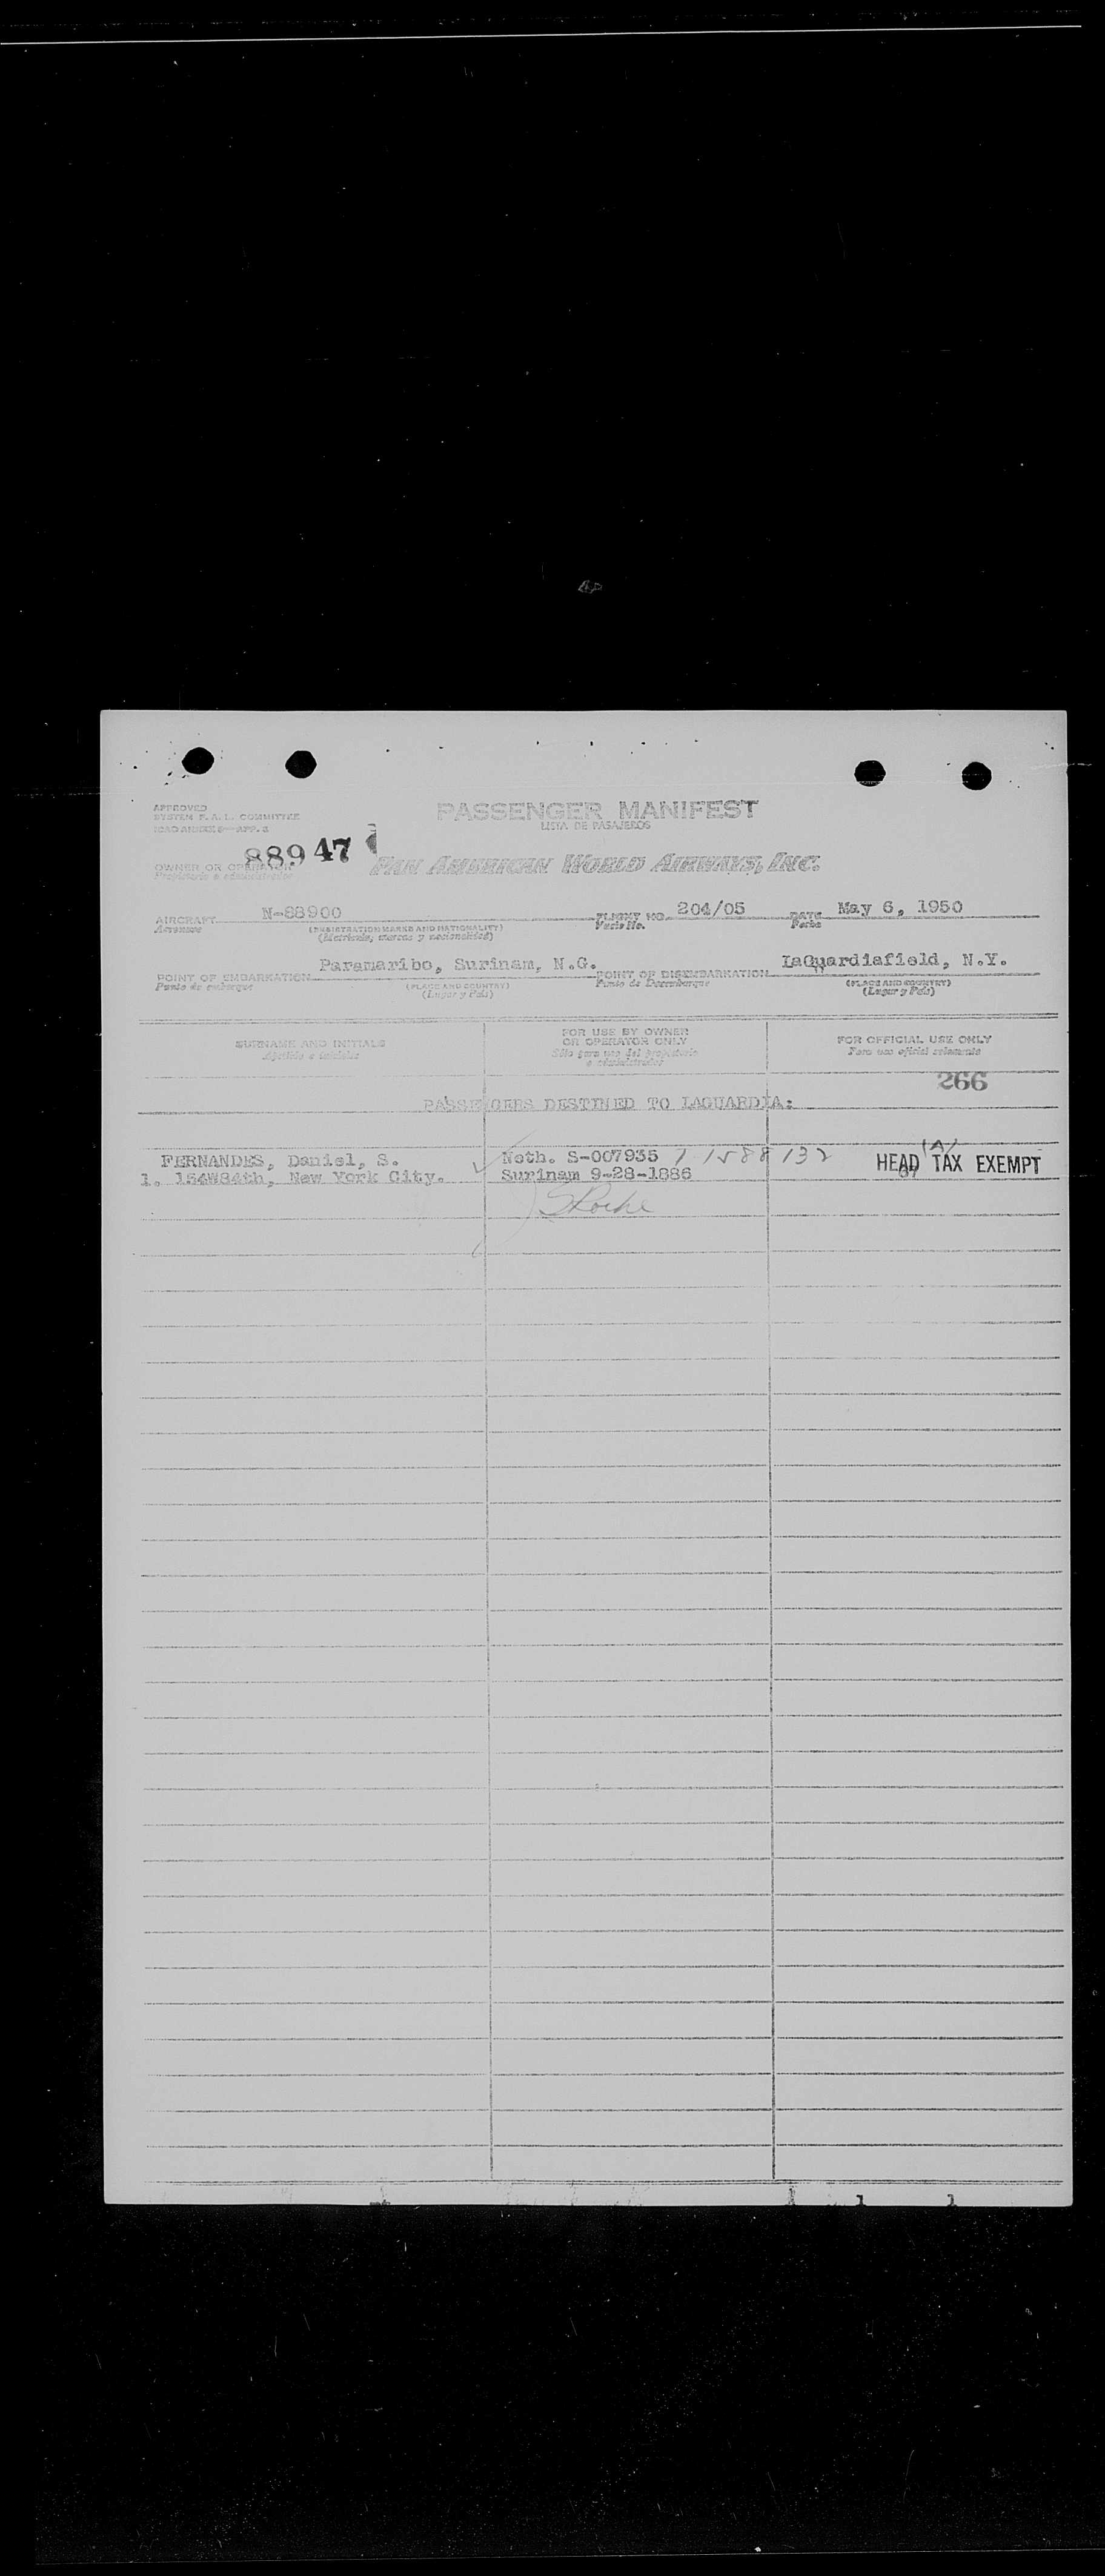 APPROVED
SYSTEM F. A. L. COMMITTEE
ICAO ANNEX 9—APP. 3
PASSENGER MANIFEST
LISTA DE PASAJEROS
88947
OWNER OR OPERATOR
Propietario o administrador
PAN AMERICAN WORLD AIRWAYS, INC.
AIRCRAFT N-88900 FLIGHT NO. 204/05 DATE May 6, 1950
Aeronave (REGISTRATION MARKS AND NATIONALITY) Vuelo No. Fecha
(Matrícula, marcas y nacionalidad)
POINT OF EMBARKATION Paramaribo, Surinam, N.G. POINT OF DISEMBARKATION LaGuardiafield, N.Y.
Punto de embarque (PLACE AND COUNTRY) Punto de Desembarque (PLACE AND COUNTRY)
(Lugar y País) (Lugar y País)
SURNAME AND INITIALS
Apellido e iniciales
FOR USE BY OWNER
OR OPERATOR ONLY
Sólo para uso del propietario
o administrador
FOR OFFICIAL USE ONLY
Para uso oficial solamente
266
PASSENGERS DESTINED TO LAGUARDIA:
FERNANDES, Daniel, S. Neth. S-007935
1. 154W84th, New York City. Surinam 9-28-1886
HEAD TAX EXEMPT